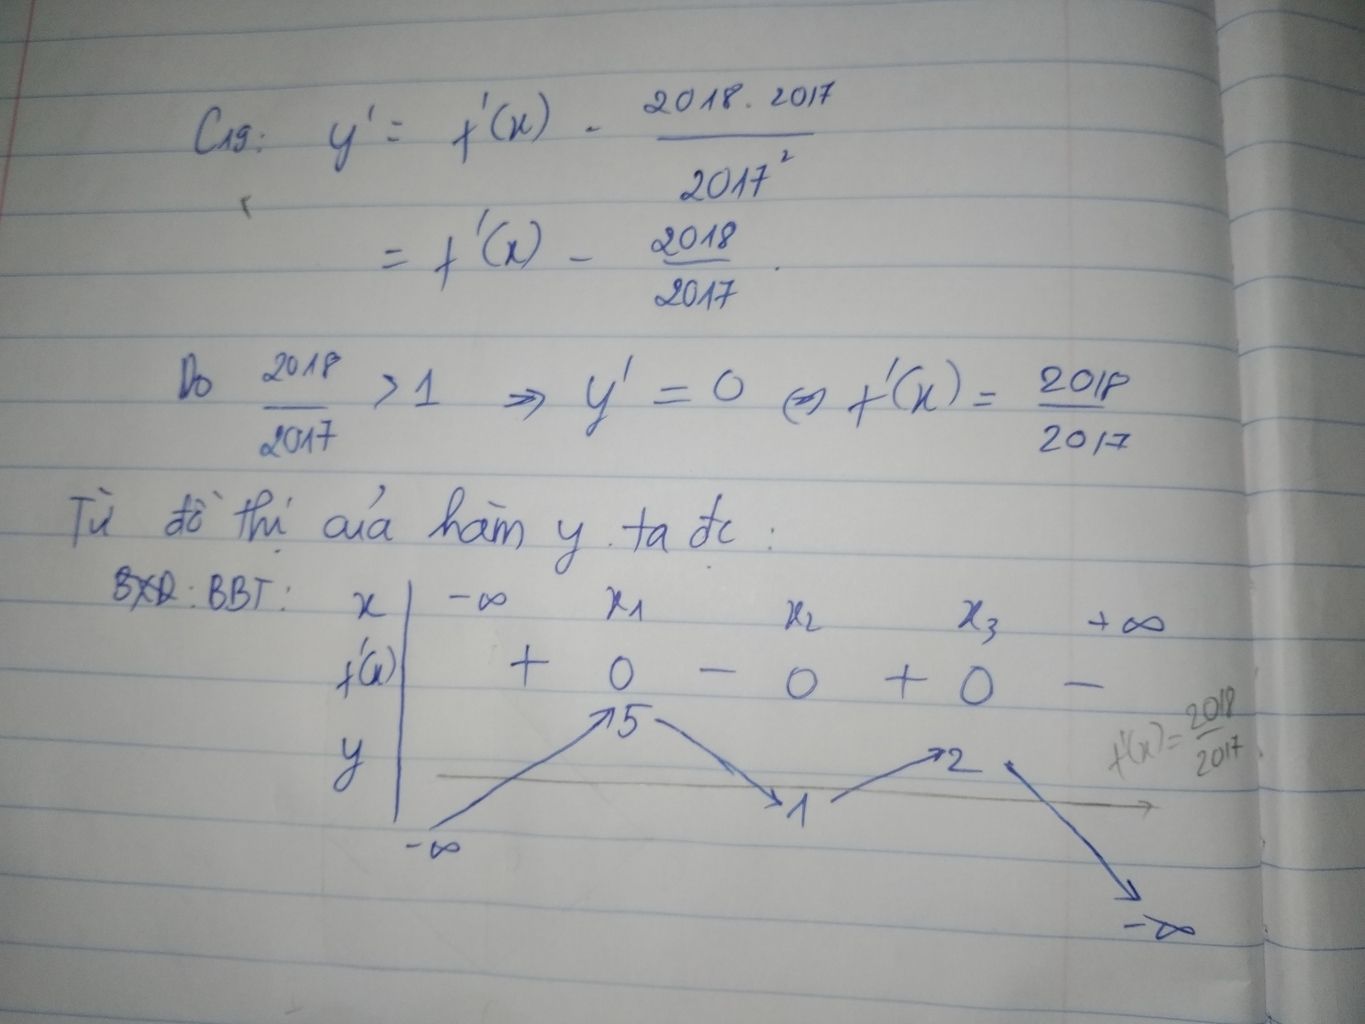 C19: y' = f'(x) - 2018.2017 / 2017²
= f'(x) - 2018/2017.
Do 2018/2017 > 1 => y' = 0 <=> f'(x) = 2018/2017
Từ đồ thị của hàm y ta đc:
BXD: BBT: x | -∞ x1 x2 x3 +∞
f'(x) | + 0 - 0 + 0 -
f'(x) = 2018/2017
y | -∞ 5 1 2 -∞